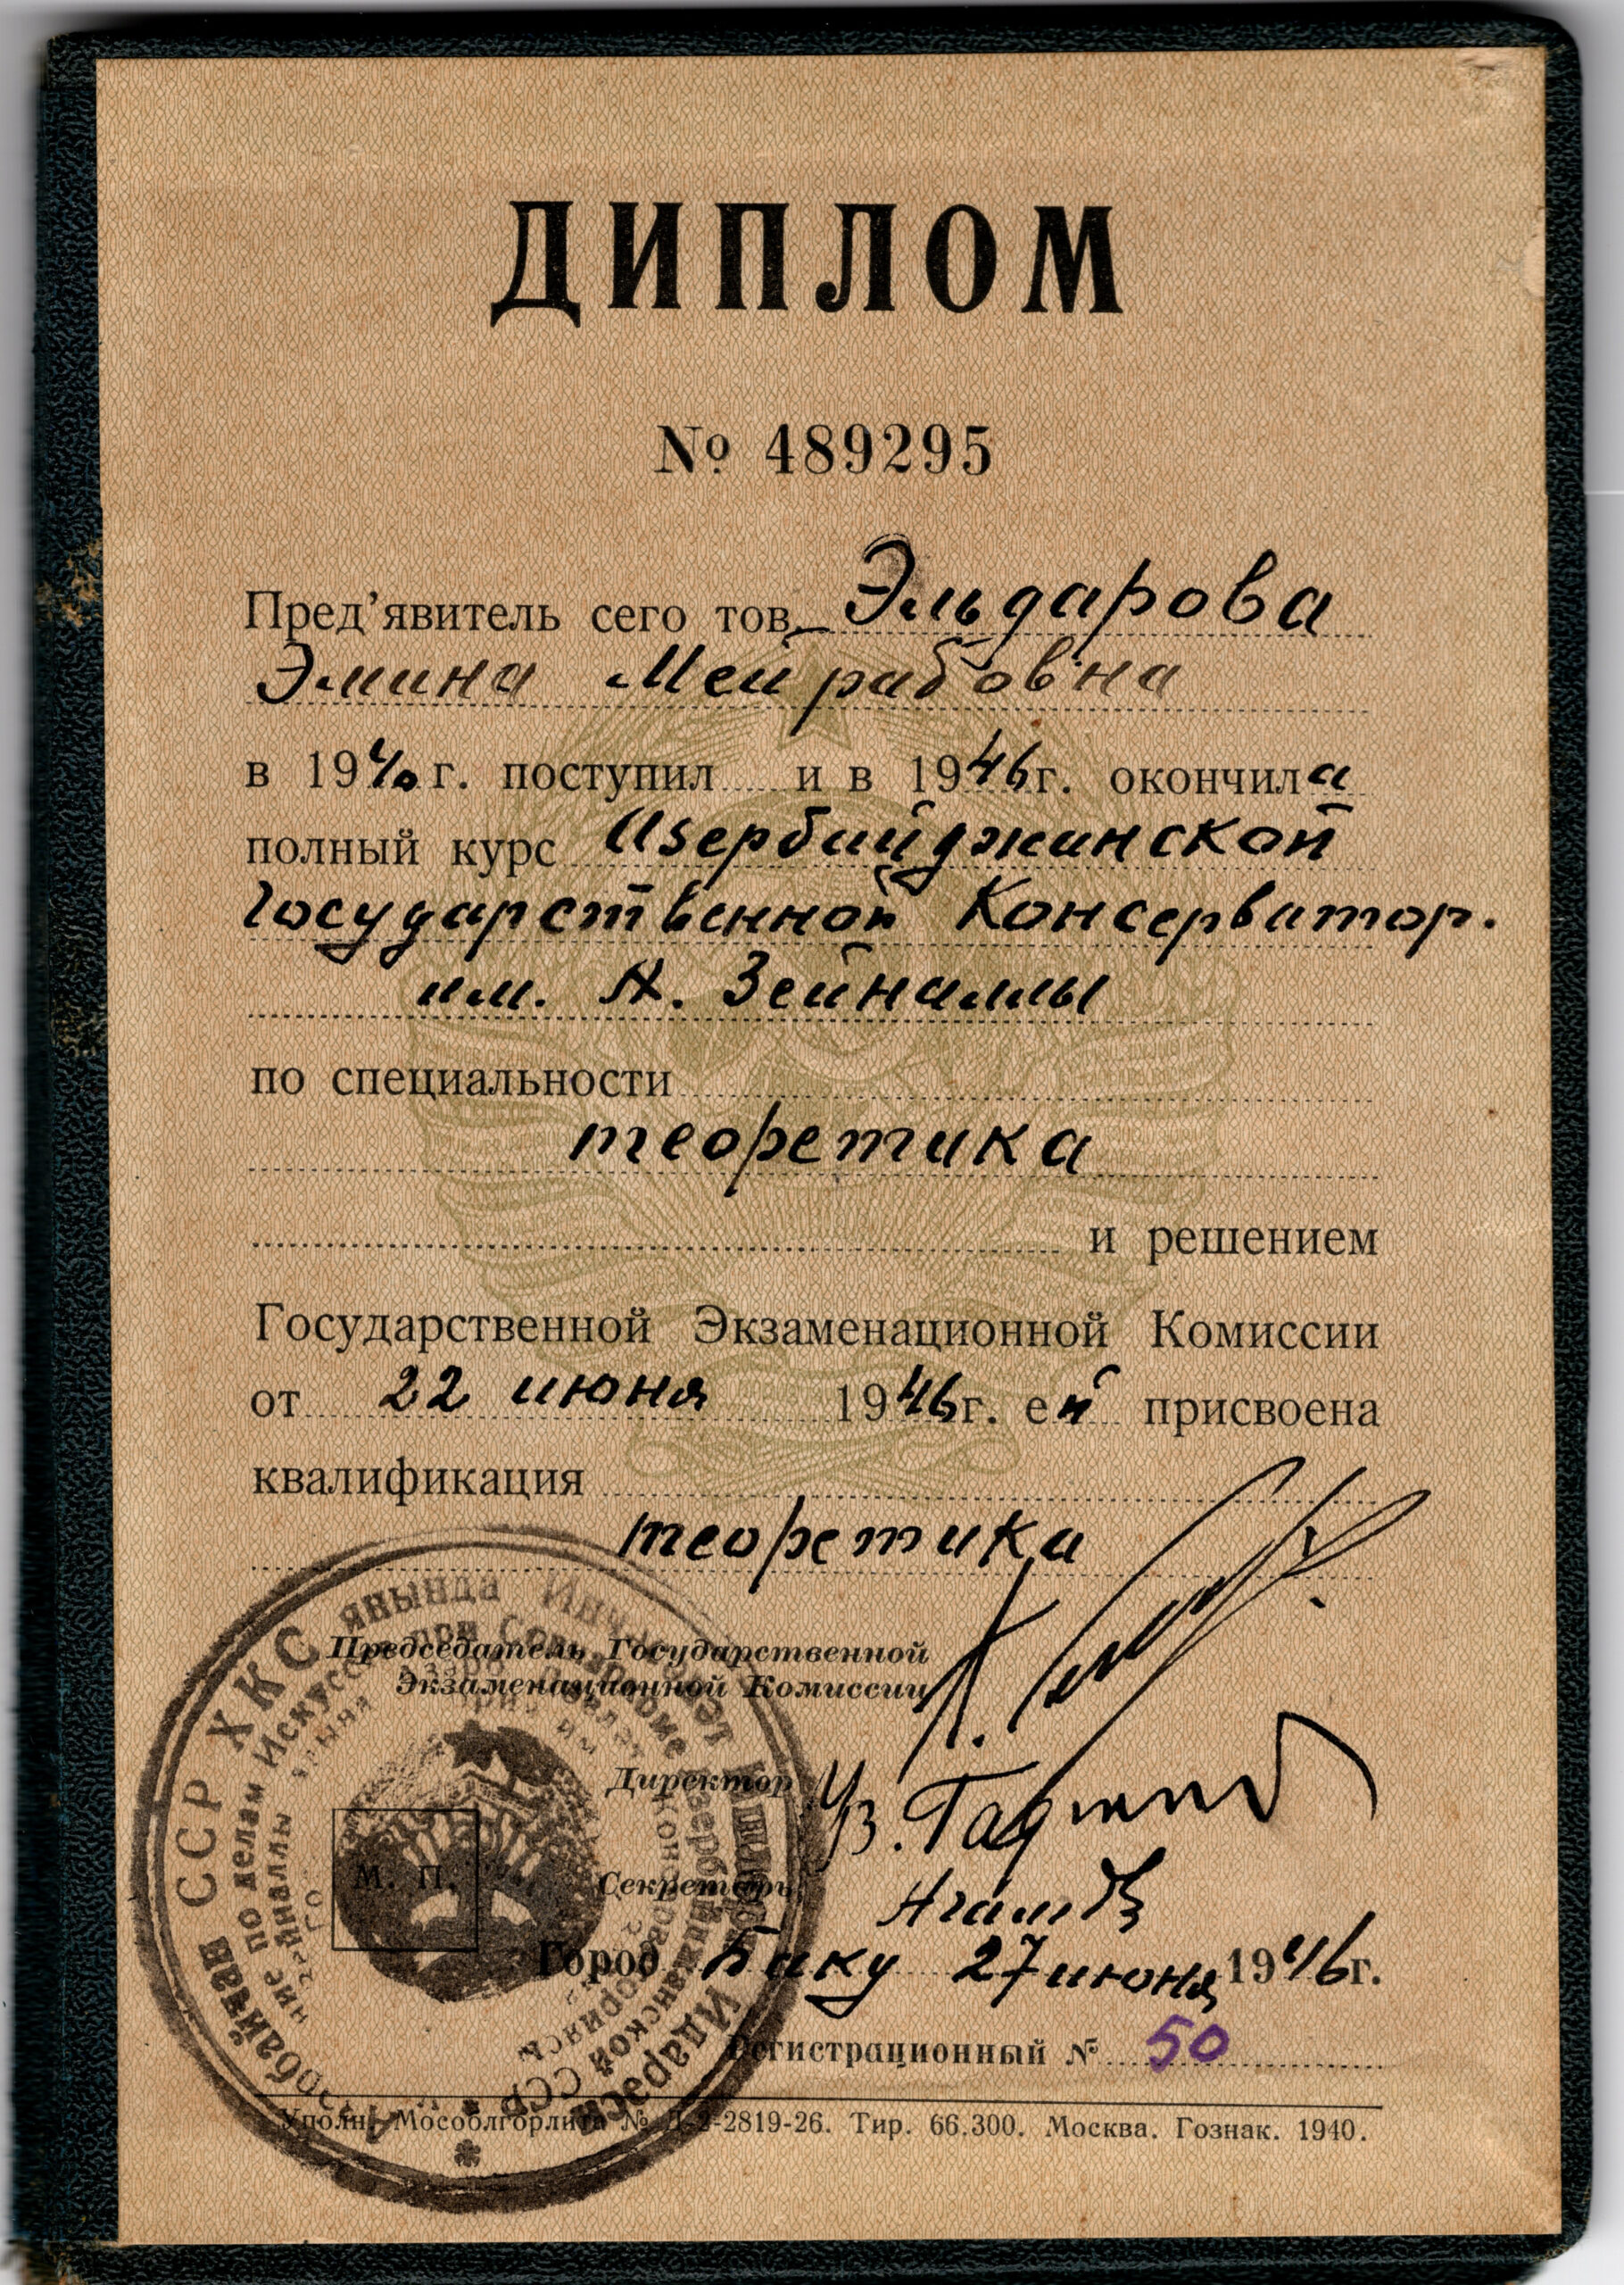 ДИПЛОМ
№ 489295
Пред’явитель сего тов. Эльдарова
Эмина Мейрабовна
в 1940 г. поступил и в 1946 г. окончила
полный курс Азербайджанской
Государственной Консерватор.
им. А. Зейналлы
по специальности
теоретика
и решением
Государственной Экзаменационной Комиссии
от 22 июня 1946 г. ей присвоена
квалификация
теоретика
Председатель Государственной
Экзаменационной Комиссии
Директор Уз. Гаджиб
Секретарь
М. П.
Город Баку 27 июня 1946 г.
Регистрационный № 50
Уполн. Мособлгорлита № Д-2-2819-26. Тир. 66.300. Москва. Гознак. 1940.
Азәрбайҹан ССР ХКС янында Идарәси
по делам Искусств при Совнаркоме Азербайджанской ССР